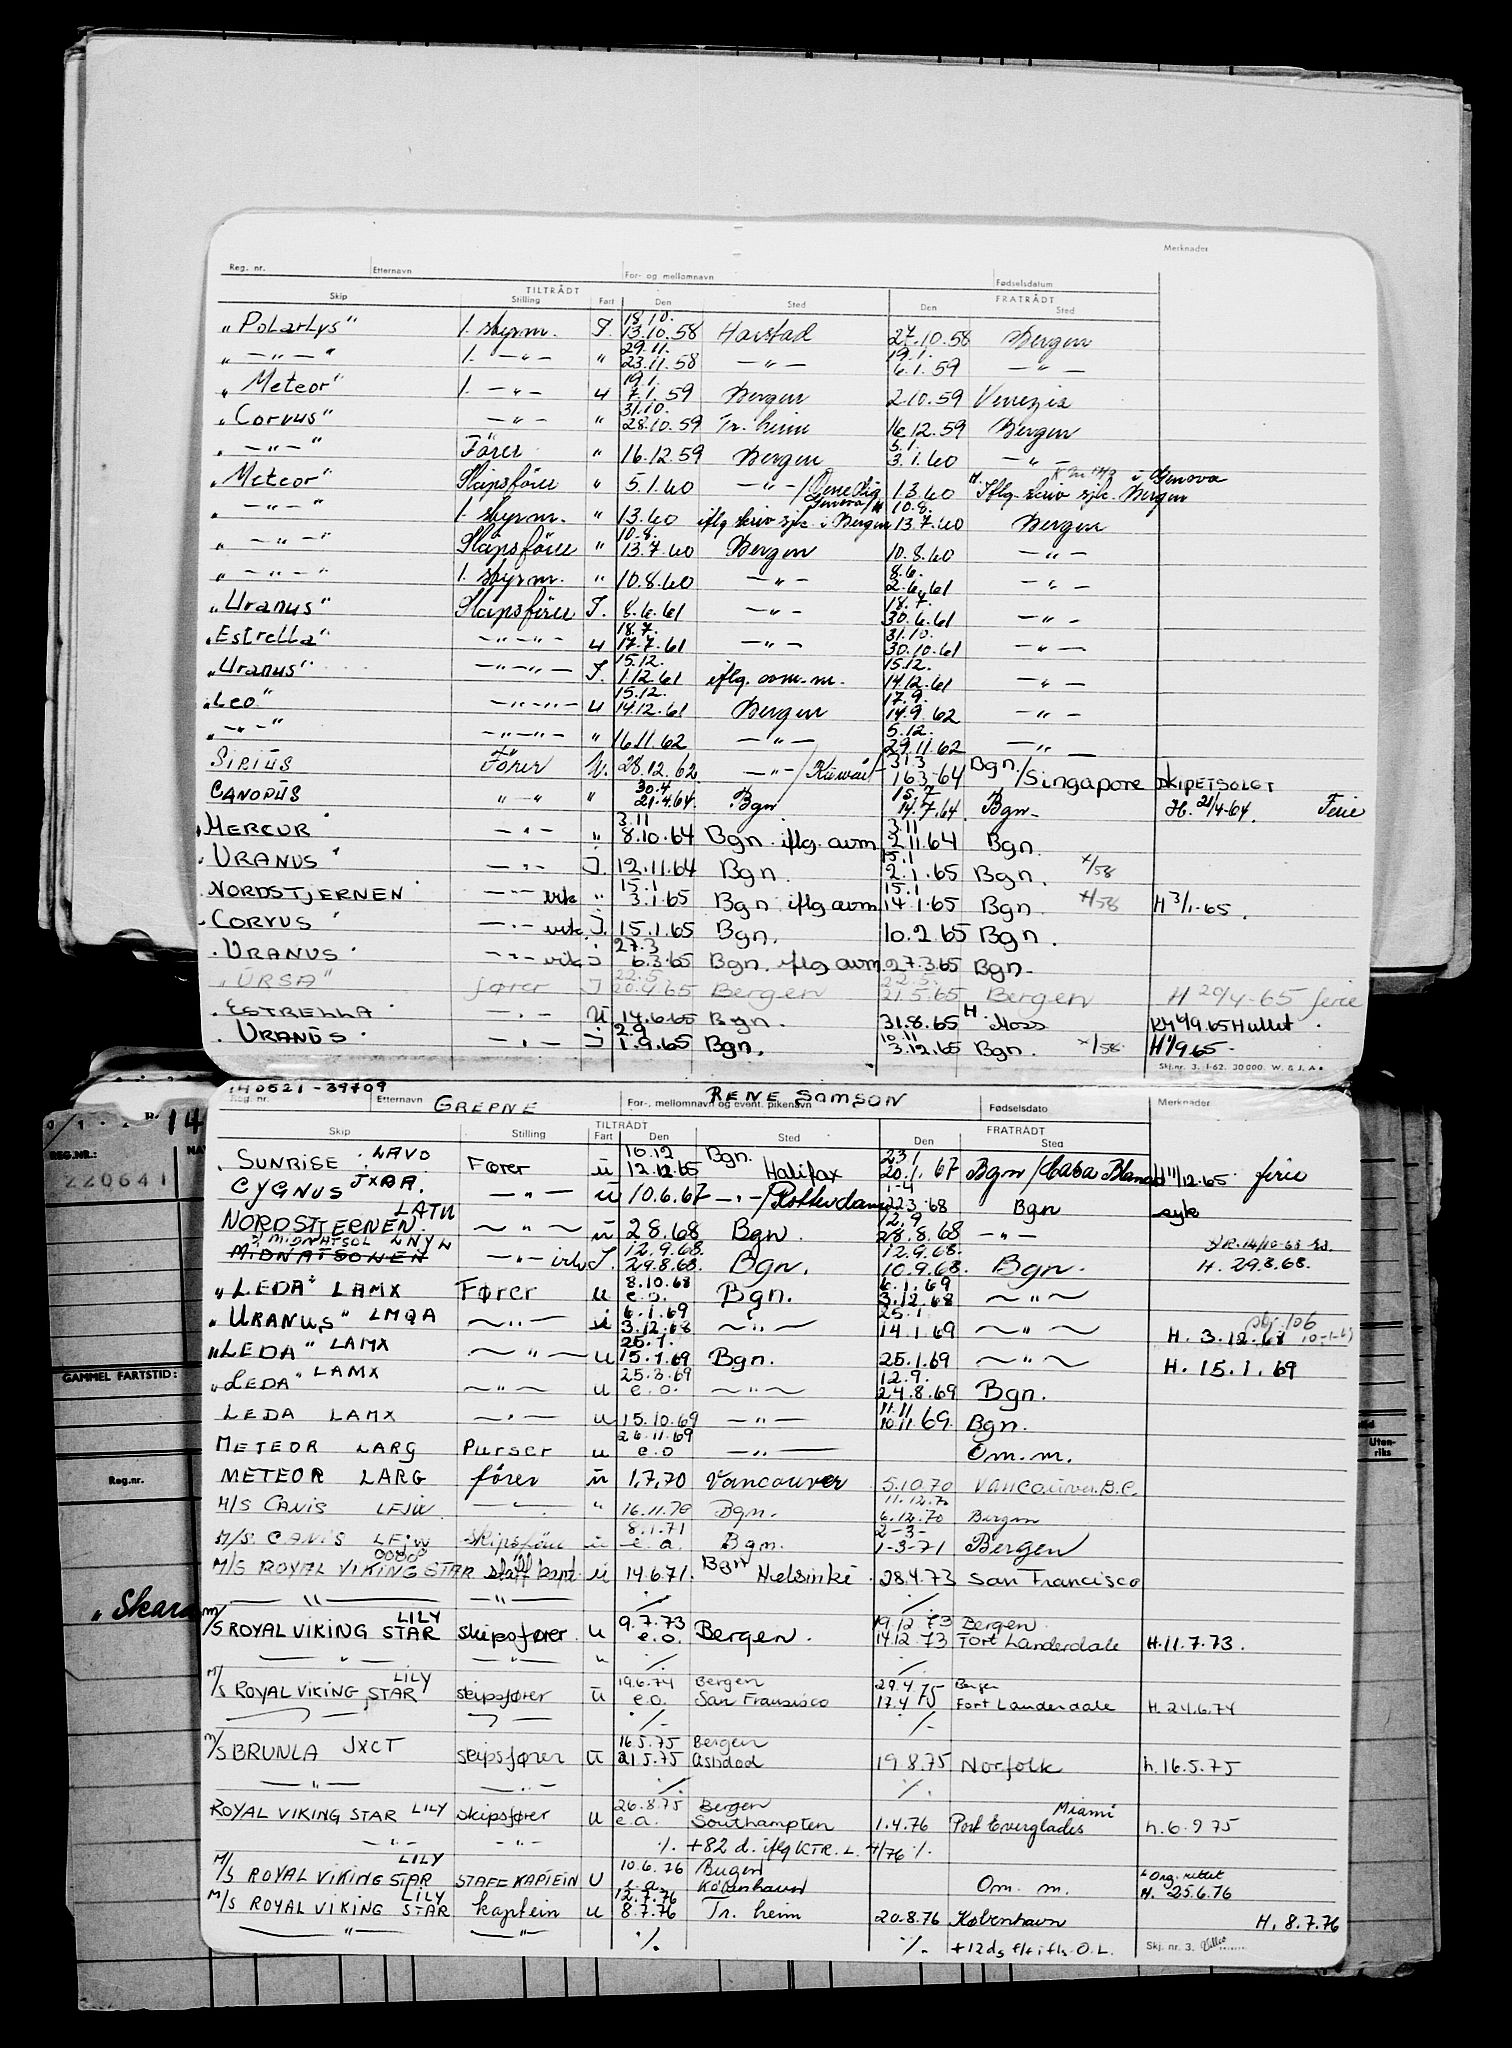 Merknader
Reg. nr. Etternavn For- og mellomnavn Fødselsdatum
TILTRÅDT FRATRÅDT
Skip Stilling Fart Den Sted Den Sted
18.10.
"Polarlys" 1. styrm. I. 13.10.58 Harstad 27.10.58 Bergen
29.11. 19.1.
" — " — " 1. — " — " 23.11.58 — " — 6.1.59 — " —
19.1.
"Meteor" 1. — " — u 7.1.59 Bergen 2.10.59 Venezia
31.10.
"Corvus" — " — " 28.10.59 Tr. heim 16.12.59 Bergen
5.1.
" — " — " Fører " 16.12.59 Bergen 3.1.60 — " —
"Meteor" Skipsfører " 5.1.60 — " — / Venedig 1.3.60 H. Iflg. skriv sjk. Bergen i Genova
Genova/ 10.8.
" — " — " 1. styrm. " 1.3.60 iflg skriv sjk. i Bergen 13.7.60 Bergen
10.8.
" — " — " Skipsfører " 13.7.60 Bergen 10.8.60 — " —
8.6.
" — " — " 1. styrm. " 10.8.60 — " — 2.6.61 — " —
18.7.
"Uranus" Skipsfører I. 8.6.61 — " — 30.6.61 — " —
18.7. 31.10.
"Estrella" — " — " — u 17.7.61 — " — 30.10.61 — " —
15.12. 15.12.
"Uranus" — " — " — I. 1.12.61 iflg. avm. 14.12.61 — " —
15.12. 17.9.
"Leo" — " — " — u 14.12.61 Bergen 14.9.62 — " —
5.12.
" — " — " — " — " — " 16.11.62 — " — 29.11.62 — " —
31.3
SIRIUS Fører U. 28.12.62 — " — / Kuwait 16.3.64 Bgn. / Singapore SKIPET SOLGT
30.4 15.7
CANOPUS " — " " 21.4.64. Bgn 14.7.64 Bgn — H. 21/4-64. Ferie
3.11 3.11
"MERCUR" — " — " 8.10.64 Bgn. iflg. avm 2.11.64 Bgn.
15.1
"URANUS" — " — I. 12.11.64 Bgn. 2.1.65 Bgn. x/58
15.1 15.1
"NORDSTJERNEN" — " — vik " 3.1.65 Bgn iflg avm. 14.1.65 Bgn. x/58 H 3/1-65.
"CORVUS" — " — vik. I. 15.1.65 Bgn. 10.2.65 Bgn.
27.3
"URANUS" — " — vik I 6.3.65 Bgn. iflg avm. 27.3.65 Bgn.
22.5 22.5.
"URSA" fører I 20.4.65 Bergen 21.5.65 Bergen H 20/4-65 ferie
"ESTRELLA" — " — U 14.6.65 Bgn. 31.8.65 H. Moss
2.9 10.11
"URANUS" — " — I 1.9.65 Bgn. 3.12.65 Bgn. x/58 H 1/9 65
Skj.nr. 3. 1-62. 30000. W. & J. A s
140521-39709 RENE SAMSON
Reg. nr. Etternavn GREPNE For-, mellomnavn og event. pikenavn Fødselsdato Merknader
TILTRÅDT FRATRÅDT
Skip Stilling Fart Den Sted Den Sted
10.12 Bgn. 23.1
SUNRISE LAVO Fører u 12.12.65 Halifax 20.1.67 Bgn / Casa Blanca H 11/12-65 ferie
1-4
CYGNUS JXAA. — " — u 10.6.67 — " — / Rotterdam 22.3.68 Bgn syk
LATU 12.9
NORDSTJERNEN. — " — u 2.8.68 Bgn. 28.8.68 — " —
MIDNATSOL LNYL 12.9.68. 12.9.68.
MIDNATSONEN — " — vik I. 29.8.68. Bgn. 10.9.68. Bgn. H. 29.8.68.
8.10.68 6.1.69
"LEDA" LAMX Fører u e.o. Bgn. 3.12.68 — " —
6.1.69 25.1
"URANUS" LMQA — " — i 3.12.68 — " — 14.1.69 — " — H. 3.12.68
25.1.
"LEDA" LAMX — " — u 15.1.69 Bgn. 25.1.69 — " — H. 15.1.69
25.3.69 12.9.
"LEDA" LAMX — " — u e.o. — " — 24.8.69 Bgn.
11.11
LEDA LAMX — " — u 15.10.69 — " — 10.11.69. Bgn.
26.11.69
METEOR LARG Purser u e.o — " — Om. m.
METEOR LARG fører u 1.7.70 Vancouver 5.10.70 Vancouver. B.C.
11.12.70
M/S CANIS LFJW — " — " 16.11.70 Bgn. 6.12.70 Bergen
8.1.71 2-3-
M/S. CANIS LFJW skipsfører u e.a. Bgn. 1-3-71 Bergen
M/S ROYAL VIKING STAR staff kapt. u 14.6.71. Bgn Helsinki 28.4.73 San Francisco
— " — — " — ./. ./.
LILY 9.7.73 19.12 73 Bergen
M/S ROYAL VIKING STAR skipsfører. u e.o. Bergen. 14.12.73 Fort Landerdale H. 11.7.73.
— " — — " — " ./. ./.
LILY 19.6.74 Bergen 29.4.75 Bergen
M/S ROYAL VIKING STAR skipsfører u e.o. San Fransisco 17.4.75 Fort Landerdale H. 24.6.74
./. ./.
16.5.75 Bergen
M/S BRUNLA JXCT skipsfører u 21.5.75 Ashdod 19.8.75 Norfolk h. 16.5.75
— " — — " — ./. ./.
26.8.75 Bergen Miami
ROYAL VIKING STAR LILY skipsfører u e.a. Southampten 1.4.76 Port Everglades h. 6.9 75
— " — — " — ./. +82 d. iflg KTR. L. 4/76 ./.
LILY 10.6.76 Bergen
M/S ROYAL VIKING STAR STAFF KAPTEIN U e.a. København Om. m. H. 25.6.76
LILY 12.7.76
M/S ROYAL VIKING STAR kaptein u 8.7.76 Tr. heim 20.8.76 København H. 8.7.76
— " — — " — ./. ./. Skj. nr. 3.
REG.NR.:
220641
GAMMEL FARTSTID:
Reg.nr.
"Skara
14
Uten-
riks